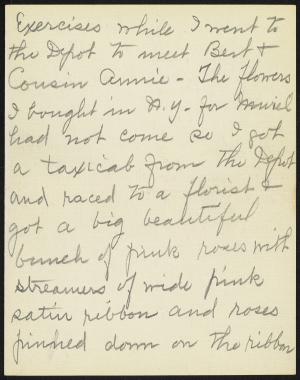 Exercises while I went to
the Depot to meet Bert &
Cousin Annie - The flowers
I bought in N.Y. for Muriel
had not come so I got
a taxicab from the Depot
and raced to a florist &
got a big beautiful
bunch of pink roses with
streamers of wide pink
satin ribbon and roses
pinned down on the ribbon